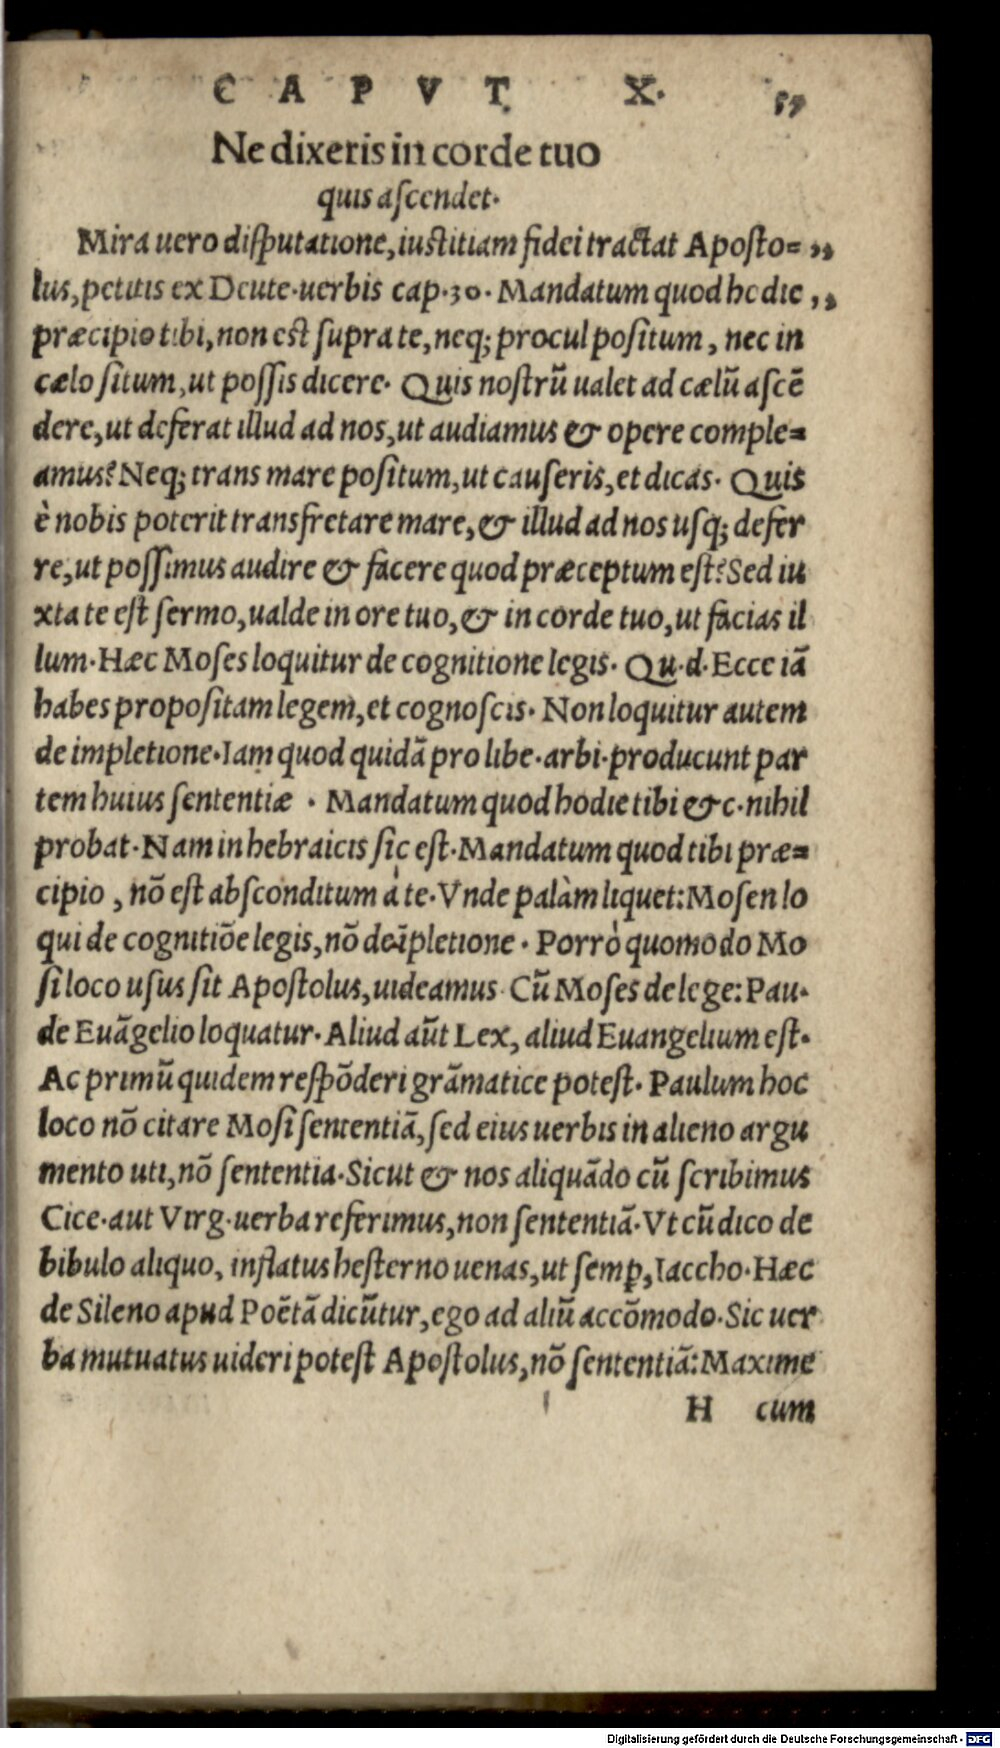 CAPVT X. 57
Ne dixeris in corde tuo
quis aſcendet.
Mira uero diſputatione, iuſtitiam fidei tractat Apoſto= ,,
lus, petitis ex Deute. uerbis cap. 30. Mandatum quod hodie ,,
præcipio tibi, non eſt ſupra te, neq; procul poſitum, nec in
cælo ſitum, ut poſſis dicere. Quis noſtrū ualet ad cælū aſcē
dere, ut deferat illud ad nos, ut audiamus & opere comple=
amus? Neq; trans mare poſitum, ut cauſeris, et dicas. Quis
è nobis poterit transfretare mare, & illud ad nos uſq; defer
re, ut poſſimus audire & facere quod præceptum eſt? Sed iu
xta te eſt ſermo, ualde in ore tuo, & in corde tuo, ut facias il
lum. Hæc Moſes loquitur de cognitione legis. Qu. d. Ecce iā
habes propoſitam legem, et cognoſcis. Non loquitur autem
de impletione. Iam quod quidā pro libe. arbi. producunt par
tem huius ſententiæ . Mandatum quod hodie tibi &c. nihil
probat. Nam in hebraicis ſic eſt. Mandatum quod tibi præ=
cipio , nō eſt abſconditum á te. Vnde palàm liquet: Moſen lo
qui de cognitiōe legis, nō de īpletione . Porrò quomodo Mo
ſi loco uſus ſit Apoſtolus, uideamus. Cū Moſes de lege: Pau.
de Euāgelio loquatur. Aliud aūt Lex, aliud Euangelium eſt.
Ac primū quidem reſpōderi grāmatice poteſt. Paulum hoc
loco nō citare Moſi ſententiā, ſed eius uerbis in alieno argu
mento uti, nō ſententia. Sicut & nos aliquādo cū ſcribimus
Cice. aut Virg. uerba referimus, non ſententiā. Vt cū dico de
bibulo aliquo, inflatus heſterno uenas, ut ſemꝑ, Iaccho. Hæc
de Sileno apud Poētā dicūtur, ego ad aliū accōmodo. Sic uer
ba mutuatus uideri poteſt Apoſtolus, nō ſententiā: Maxime
H cum
Digitalisierung gefördert durch die Deutsche Forschungsgemeinschaft - DFG